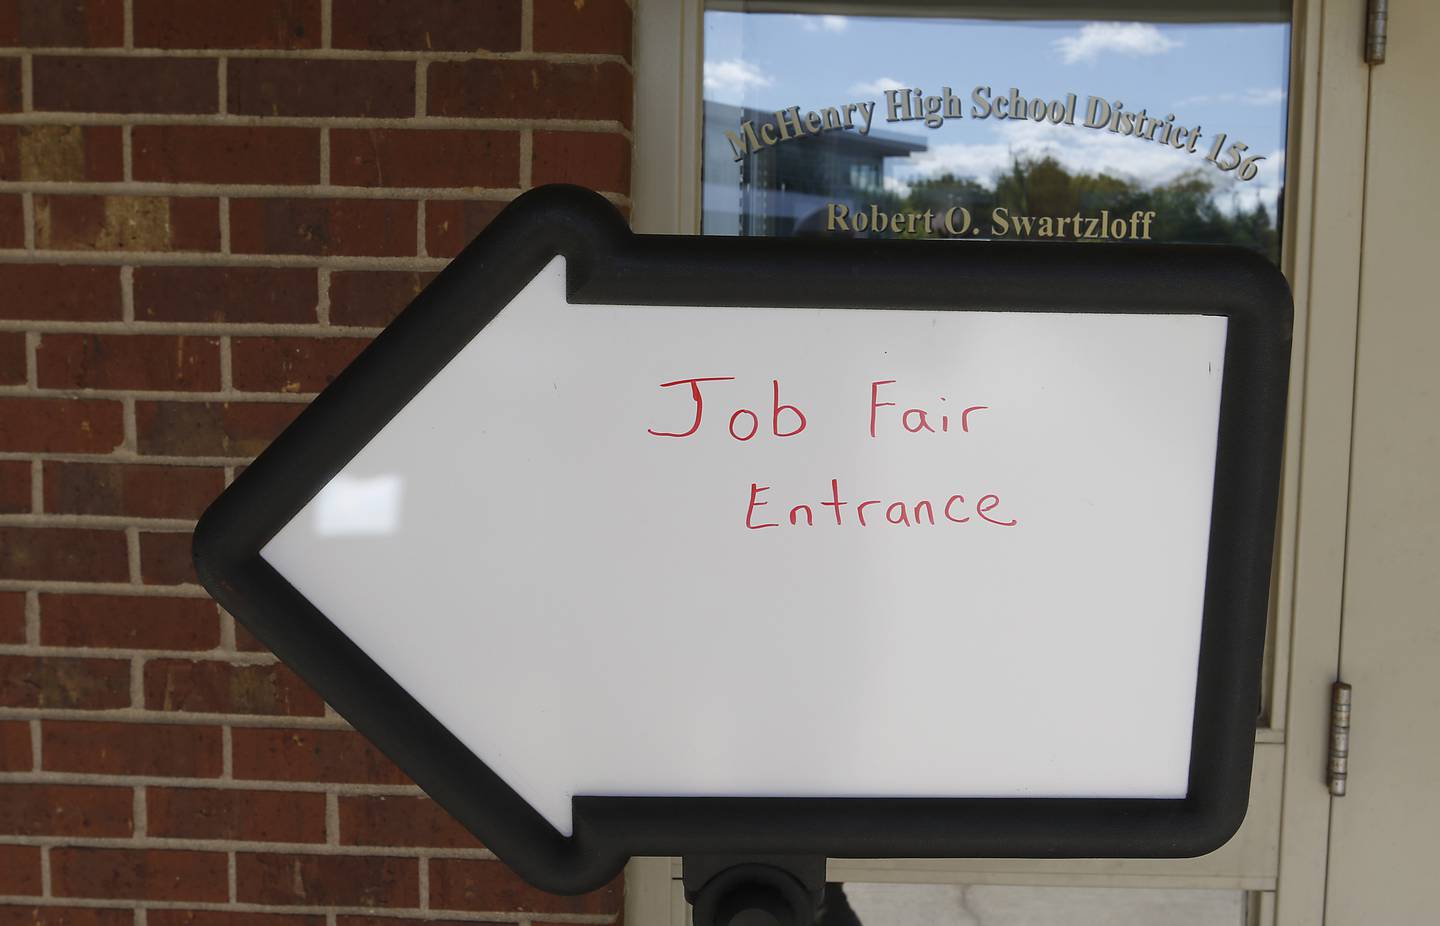 McHenry High School District 156
Robert O. Swartzloff
Job Fair
Entrance